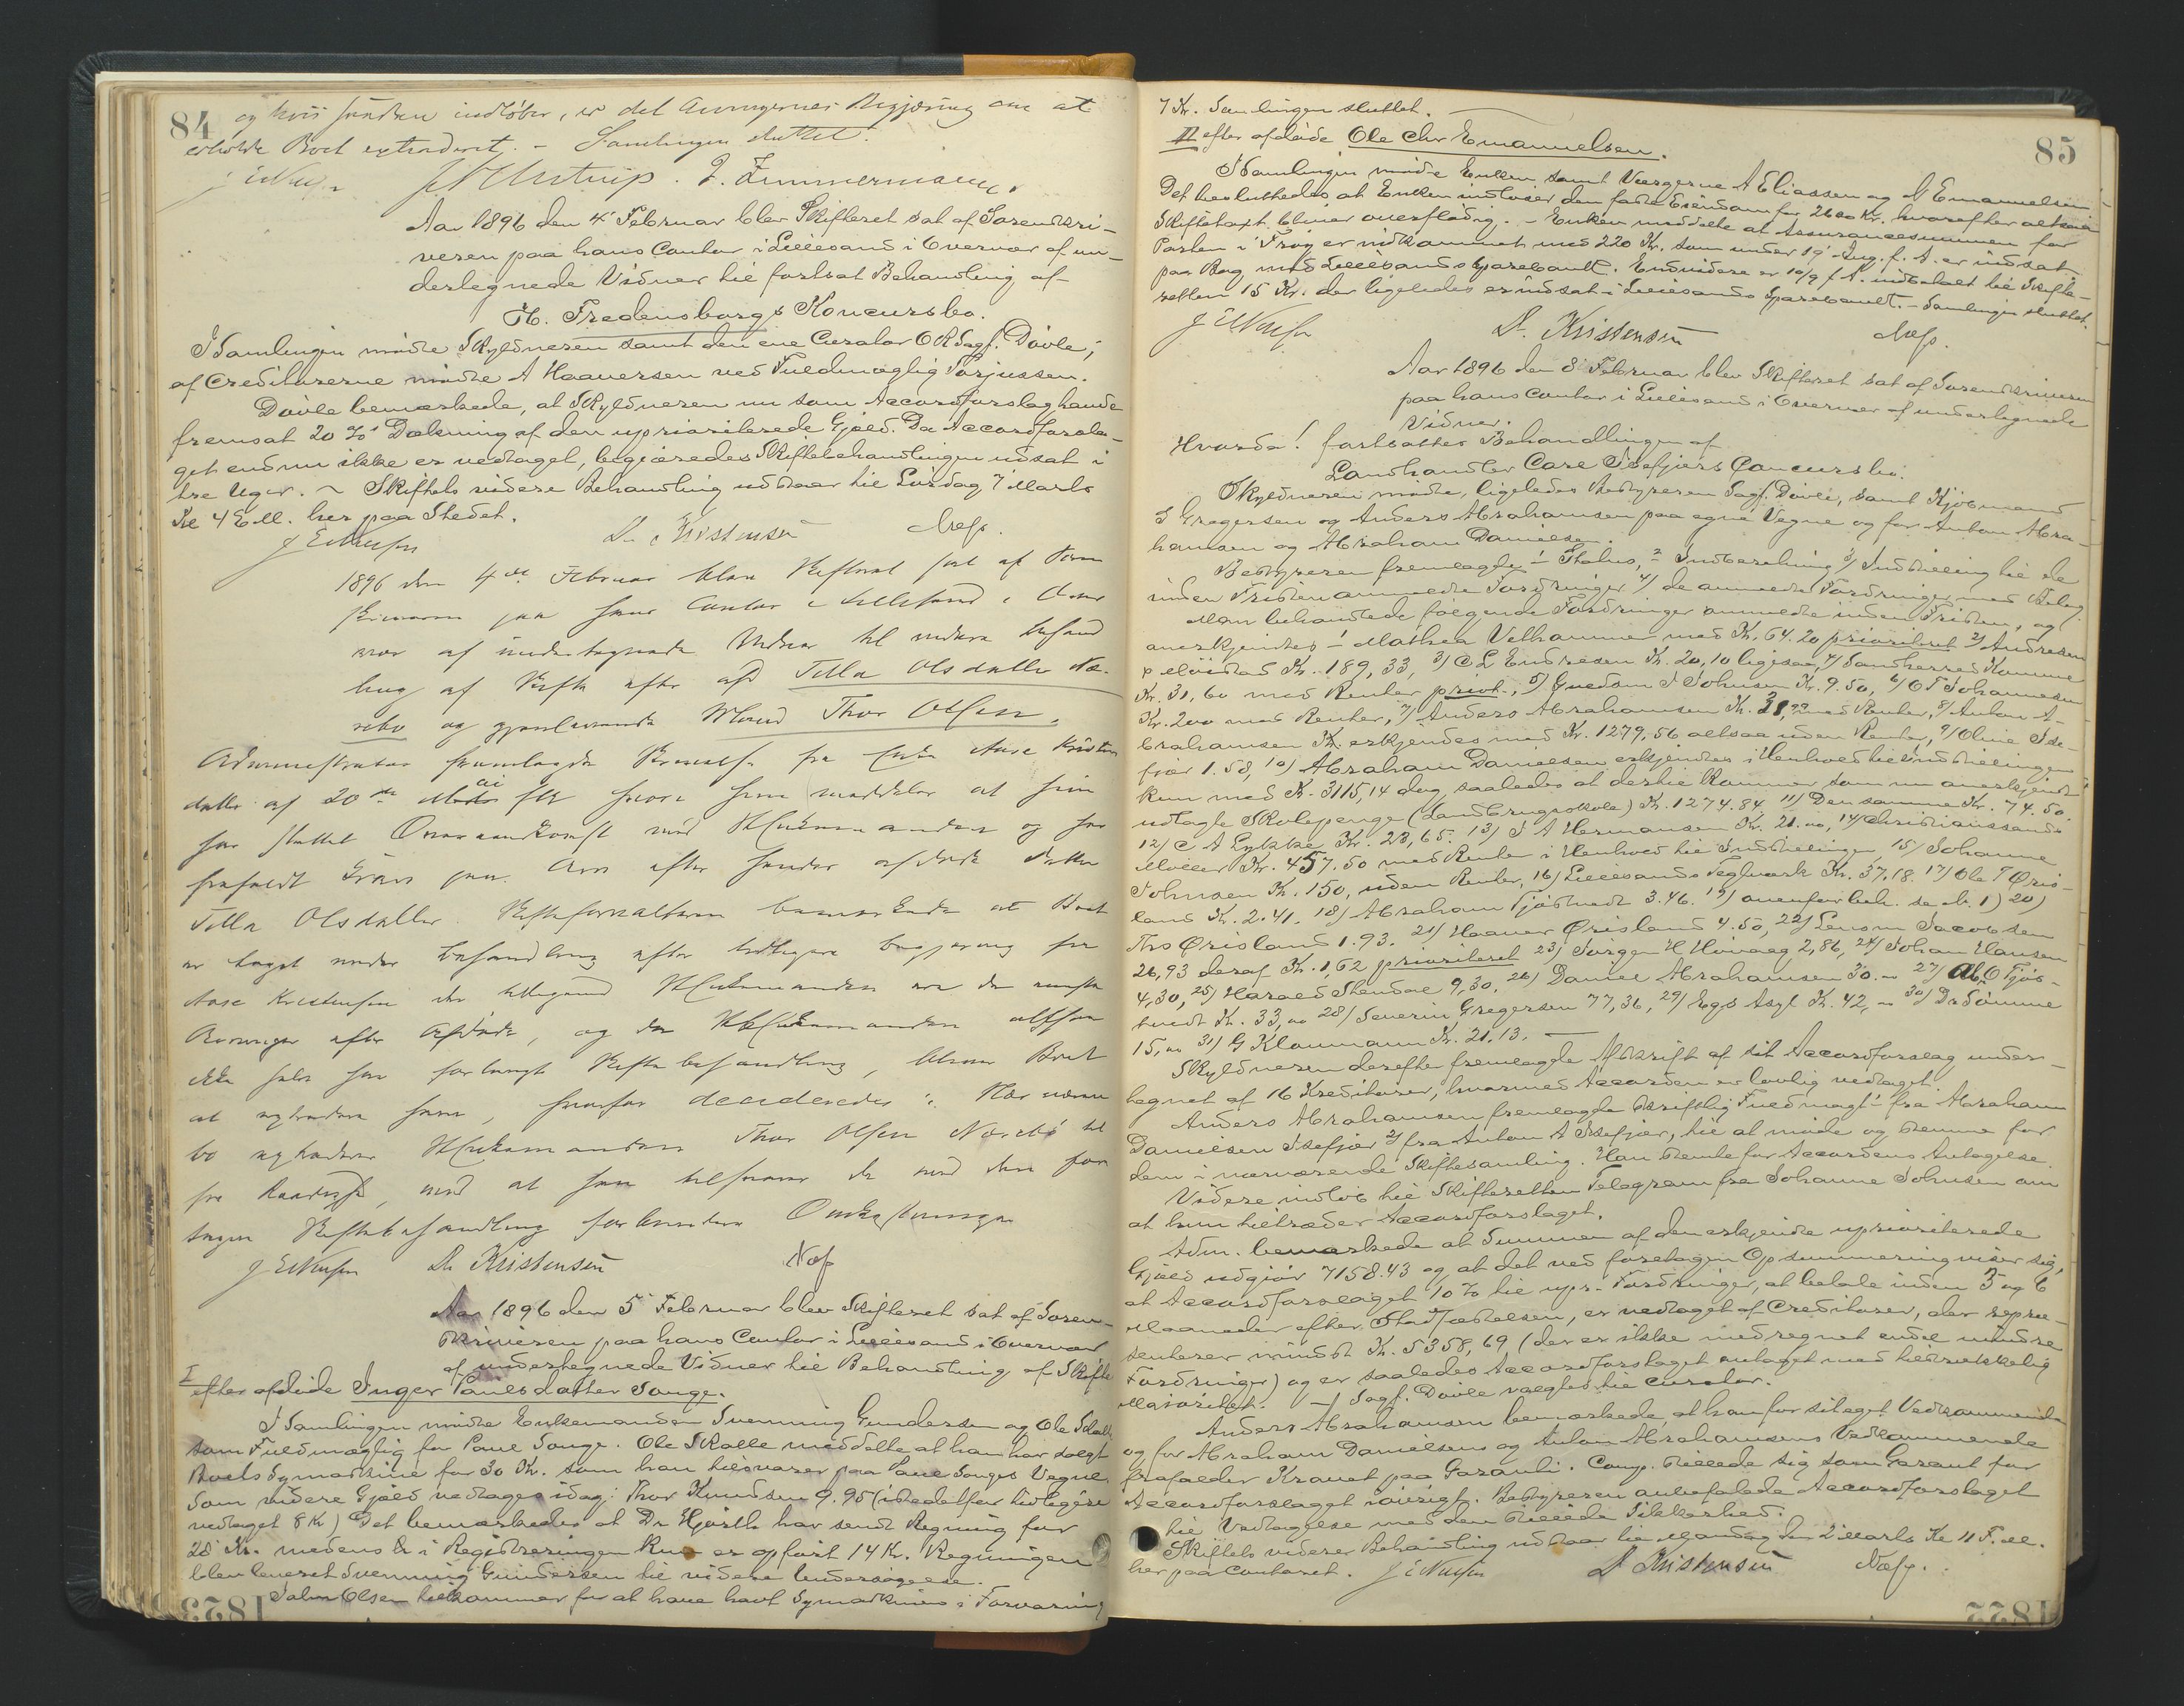 84
og hvis saadan indløber, er det Arvingernes Begjæring om at
erholde Boet extraderet. - Samlingen sluttet.
J. Zimmermann.
Aar 1896 den 4' Februar blev Skifteret sat af Sorenskri-
veren paa hans Contor i Lillesand i Overvær af un-
dertegnede Vidner til fortsat Behandling af
Th. Fredensborgs Koncursbo.
I Samlingen mødte Skyldneren samt den ene Curator O R Sagf. Døvle;
af Creditorerne mødte A Haaversen ved Fuldmægtig Torjussen.
Døvle bemærkede, at Skyldneren nu som Accordforslag havde
fremsat 20 % Dækning af den upriorterede Gjæld. Da Accordforsla-
get endnu ikke er vedtaget, begjæredes Skiftebehandlingen udsat i
tre Uger. ~ Skiftets videre Behandling udstaar til Lørdag 7 Marts
Kl 4 E M. her paa Stedet.
D. Kristensen Næss.
1896 den 4de Februar blev Skifteret sat af Soren
skriveren paa hans Contor i Lillesand i Over
vær af undertegnede Vidner til videre Behand
ling af Skifte efter afd Tilla Olsdatter Næ-
rebø og gjenlevende Mand Thor Olsen.
Administrator fremlagde Skrivelse fra Enke Aase Kristens
datter af 20de Mai hvori hun meddeler at hun
har sluttet Overenskomst med Enkemanden og har
frafaldt Krav paa Arv efter hendes afdøde Datter
Tilla Olsdatter. Skifteforvalteren bemærkede at Boet
er taget under Behandling efter tidligere Begjæring fra
Aase Kristensen der tilligemed Enkemanden var de eneste
Arvinger efter Afdøde, og da Enkemanden altsaa
ikke selv har forlangt Skiftebehandling, bliver Boet
at extradere ham, hvorfor decideredes: Nærværende
bo extraderes Enkemanden Thor Olsen Nærebø til
fri Raadighed, mod at han tilsvarer de med den fore
tagne Skiftebehandling forbundne Omkostninger
D. Kristensen Næss
Aar 1896 den 5' Februar blev Skifteret sat af Soren-
skriveren paa hans Contor i Lillesand i Overvær
af undertegnede Vidner til Behandling af Skifte
I efter afdøde Inger Paulsdatter Songe.
I Samlingen mødte Enkemanden Svenning Gundersen og Ole Skalle
som Fuldmægtig for Paul Songe. Ole Skalle meddelte at han har solgt
Boets Symaskine for 30 Kr. som han tilsvarer paa Paul Songes Vegne
Som videre Gjæld vedtages idag: Thor Knudsen 9.95 (istedetfor tidligere
vedtaget 8 Kr) Det bemærkedes at Dr Hjorth har sendt Regning for
28 Kr. medens der i Registreringen kun er opført 14 Kr. Regningen
blev leveret Svenning Gundersen til videre Undersøgelse.
Salve Olsen tilkommer for at have havt Symaskinen i Forvaring
85
7 Kr. Samlingen sluttet.
II efter afdøde Ole Chr Emanuelsen.
I Samlingen mødte Enken samt Værgerne A Eliassen og N Emanuelsen
Det besluttedes, at Enken indløser den faste Eiendom for 2600 Kr. hvorefter altsaa
Skiftetaxt bliver overflødig. - Enken meddelte at Assurancesummen for
Parten i "Frøy" er indkommet med 220 Kr. som under 19' Aug. f. A. er indsat
paa Bog med Lillesands Sparebank. Endvidere er 10/9 f A. indbetalt til Skifte-
retten 15 Kr. der ligeledes er indsat i Lillesands Sparebank. - Samlingen sluttet.
D. Kristensen Næss.
Aar 1896 den 8' Februar blev Skifteret sat af Sorenskriveren
paa hans Contor i Lillesand i Overvær af undertegnede
Vidner.
Hvorda! fortsattes Behandlingen af
Landhandler Carl Isefjærs Concursbo.
Skyldneren mødte, ligeledes Bestyreren Sagf. Døvle, samt Kjøbmand
S Gregersen og Anders Abrahamsen paa egne Vegne og for Anton Abra-
hamsen og Abraham Danielsen.
Bestyreren fremlagde 1) Status, 2) Indberetning 3) Indstilling til de
inden Fristen anmeldte Fordringer, 4) de anmeldte Fordringer med Bilag.
Man behandlede følgende Fordringer anmeldte inden Fristen, og
anerkjendtes 1) Mathea Velhammer med Kr. 64.20 prioriteret 2) Andresen
& Møistad Kr. 189,33, 3) C L Endresen Kr. 20,10 ligesaa, 4) Landherred Komune
Kr. 31,60 med Renter priort., 5) Guldsm J Johnsen Kr. 9.50, 6) O T Johannesen
Kr. 200 med Renter, 7) Anders Abrahamsen Kr. 31,77 med Renter, 8) Anton A-
brahamsen Kr. erkjendes med Kr. 1279,56 altsaa uden Renter, 9) Oline Ise-
fjær 1.58, 10) Abraham Danielsen erkjendes i Henhold til Indstillingen
kun med Kr. 3115,14 dog saaledes at dertil kommer som nu anerkjendt
udlagte Skolepenge (Landbrugsskole) Kr. 1274.84 11) Den samme Kr. 74.50.
12) C A Lykke Kr. 28,65. 13) J A Hermansen Kr. 21.00, 14) Christianssands
Møller Kr. 457.50 med Rente i Henhold til Indstillingen 15) Johanne
Johnsen Kr. 150, uden Renter, 16) Lillesands Teglverk Kr. 37,18. 17) Ole T Øris-
land Kr. 2.41. 18) Abraham Tjøstvedt 3.46. 19) ovenfor beh. se No. 1) 20)
Ths Ørisland 1.93. 21) Haaver Ørisland 4.50, 22) Lensm Jacobsen
26,93 deraf Kr. 1,62 prioriteret 23) Jørgen H Høivaag 2,86, 24) Johan Hansen
4,30, 25) Harald Stendal 9,30. 26) Daniel Abrahamsen 30.00 27) Ab. O Tjøs-
tvedt Kr. 33,00 28) Severin Gregersen 77,36, 29) Egs Asyl Kr. 42,00 30) Dr Sømme
15,00 31) G Kloumann Kr. 21,13. —
Skyldneren derefter fremlagde Afskrift af sit Accordforslag under-
tegnet af 16 Kreditorer, hvormed Accorden er lovlig vedtaget.
Anders Abrahamsen fremlagde skriftlig Fuldmagt 1) fra Abraham
Danielsen Isefjær 2) fra Anton A Isefjær, til at møde og stemme for
dem i nærværende Skiftesamling. Han stemte for Accordens Antagelse.
Videre indløb til Skifteretten Telegram fra Johanne Johnsen om
at hun tiltræder Accordforslaget.
Adm. bemærkede at Summen af den erkjendte upriorterede
Gjæld udgjør 7158.43 og at det ved foretagen Opsummering viser sig,
at Accordforslaget 10 % til upr. Fordringer, at betale inden 3 og 6
Maaneder efter Stadfæstelsen, er vedtaget af Creditorer, der repræ-
senterer mindst Kr. 5358,69 (der er ikke medregnet endel mindre
Fordringer) og er saaledes Accordforslaget antaget med tilstrækkelig
Majoritet. - Sagf. Døvle valgtes til Curator.
Anders Abrahamsen bemærkede at han for sit eget Vedkommende
og for Abraham Danielsens og Anton Abrahamsens Vedkommende
frafalder Kravet paa Garanti. Comp. stillede sig som Garant for
Accordforslaget iøvrigt. Bestyreren anbefalede Accordforslaget
til Vedtagelse med den stillede Sikkerhed.
Skiftets videre Behandling udstaar til Mandag den 2 Marts Kl 11 F. M.
her paa Contoret. D. Kristensen Næss.